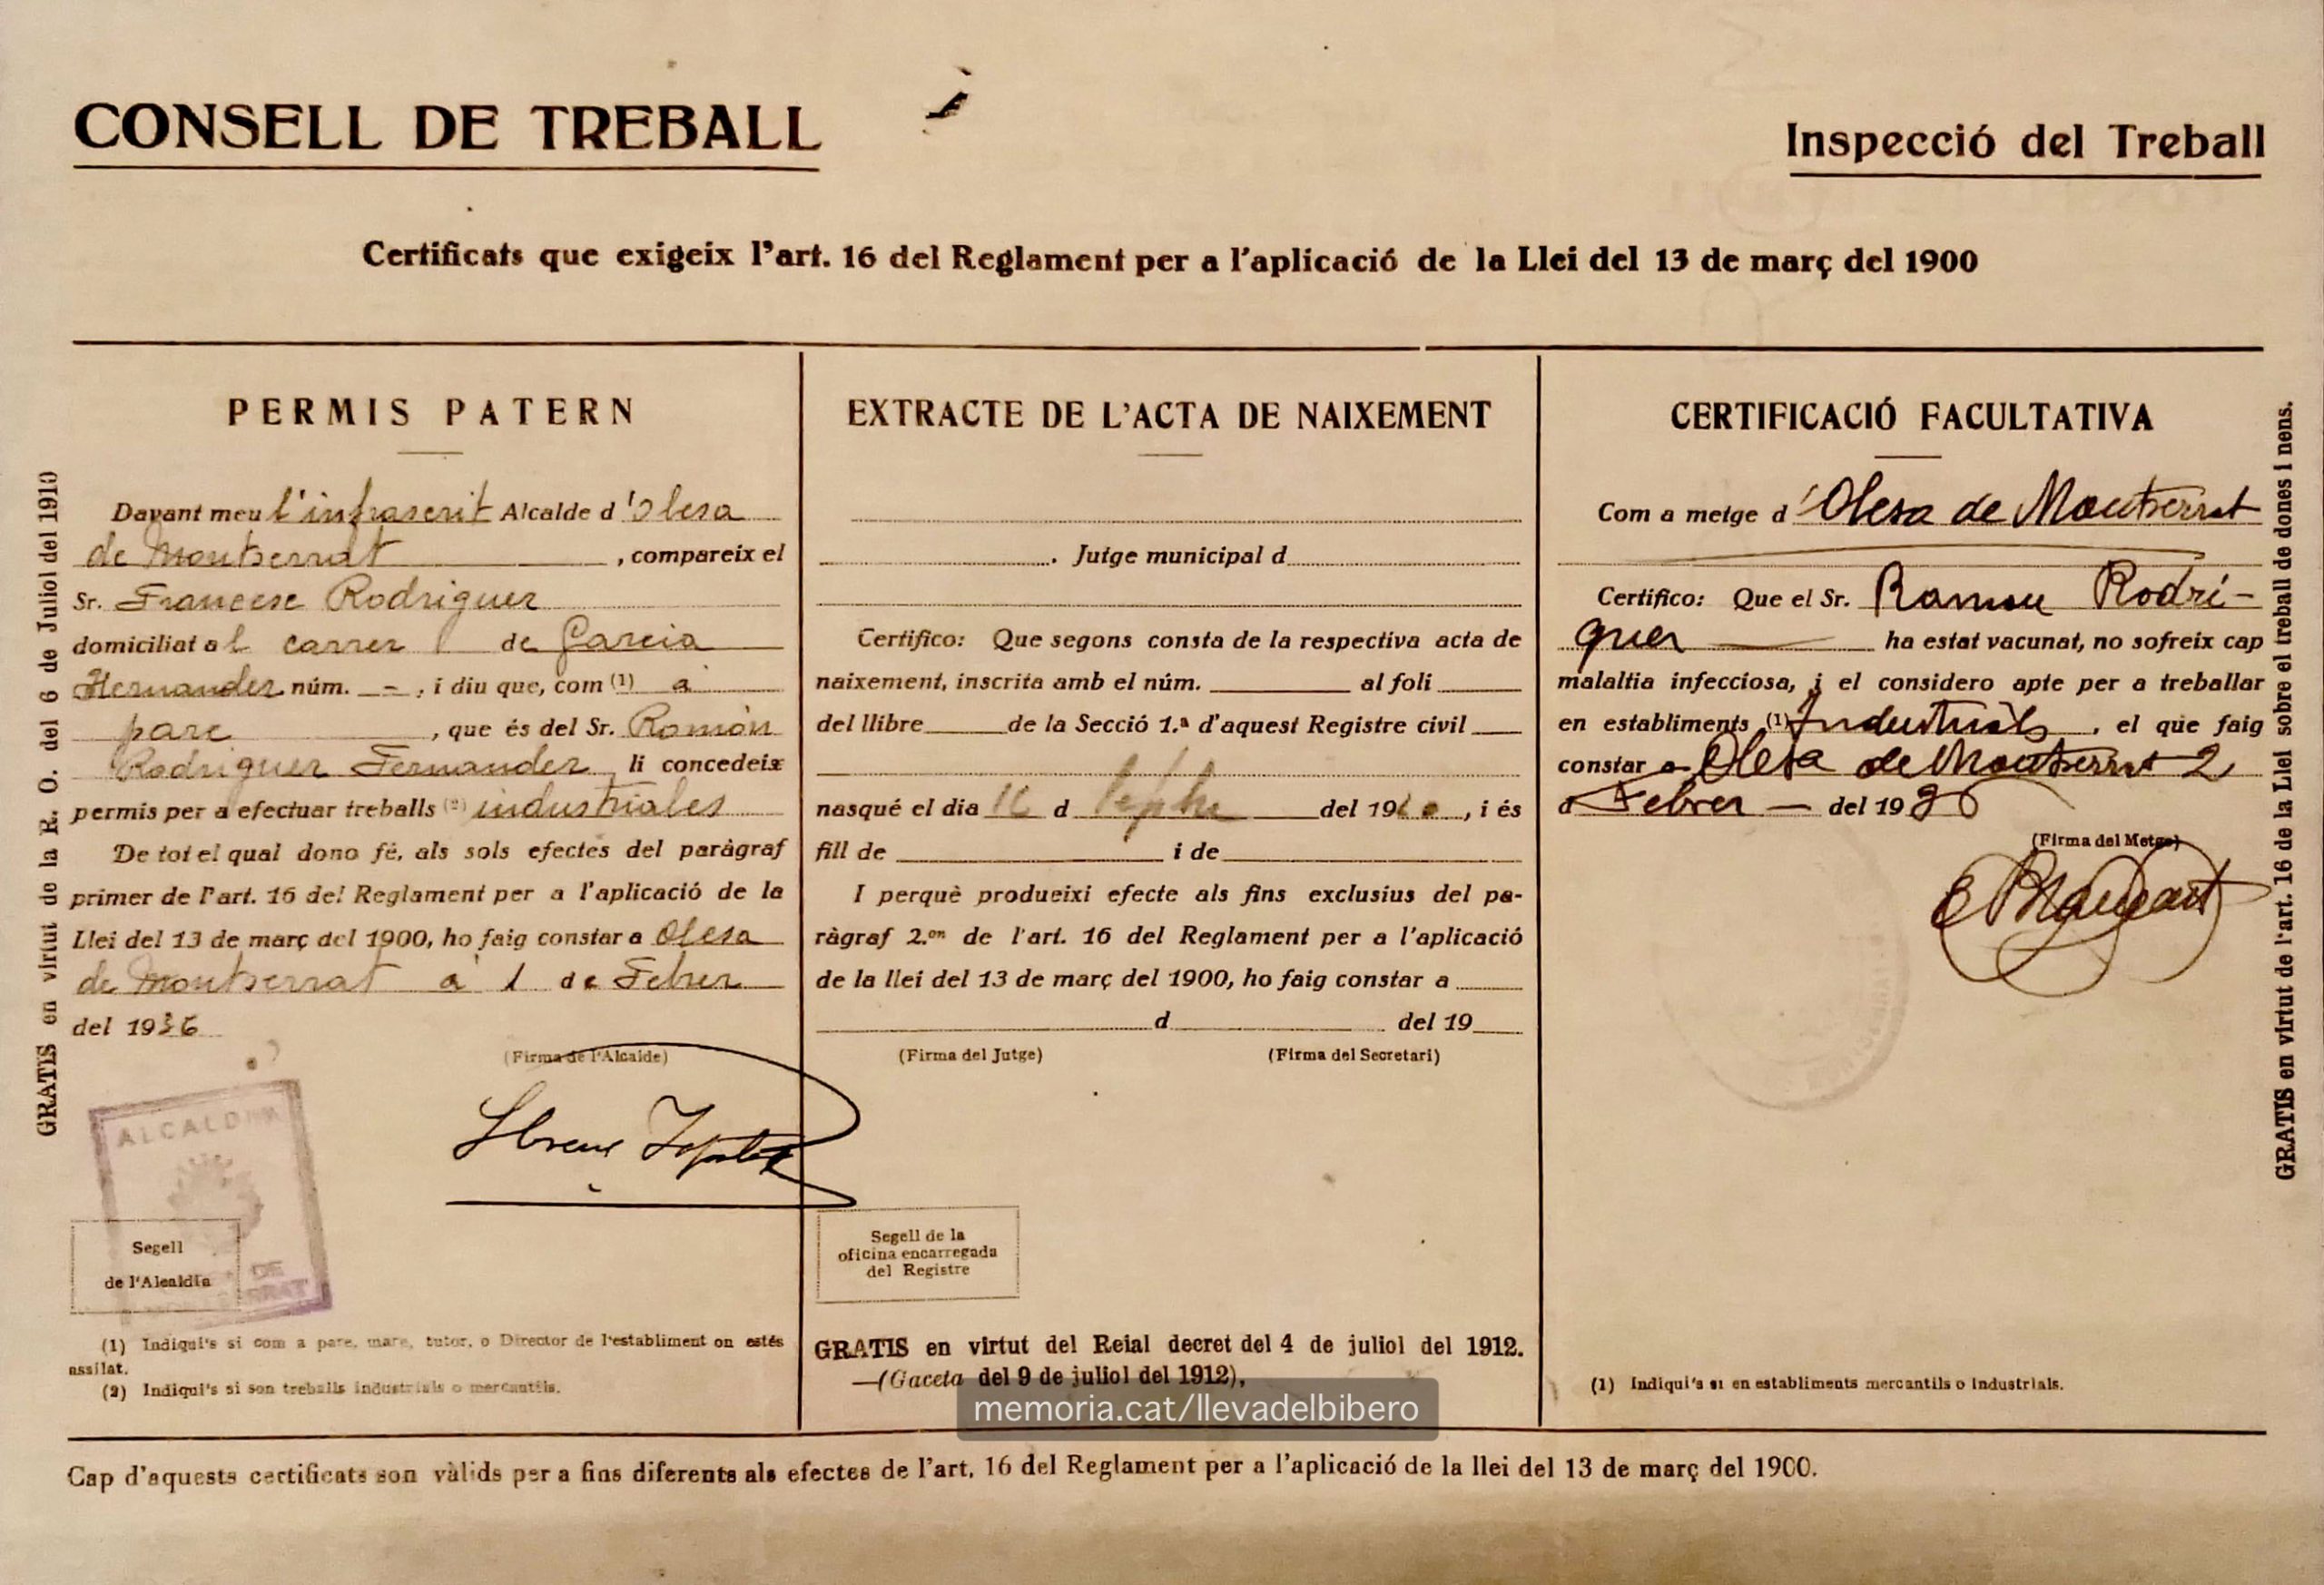 CONSELL DE TREBALL
Inspecció del Treball
Certificats que exigeix l'art. 16 del Reglament per a l'aplicació de la Llei del 13 de març del 1900
GRATIS en virtut de la R. O. del 6 de Juliol del 1910
PERMIS PATERN
Davant meu l'infrascrit Alcalde d 'Olesa
de Montserrat , compareix el
Sr. Francesc Rodriguez
domiciliat al carrer de Garcia
Hernandez núm. - , i diu que, com (1) a
pare , que és del Sr. Ramón
Rodriguez Fernandez li concedeix
permis per a efectuar treballs (2) industriales
De tot el qual dono fé, als sols efectes del paràgraf
primer de l'art. 16 del Reglament per a l'aplicació de la
Llei del 13 de març del 1900, ho faig constar a Olesa
de Montserrat a 1 de Febrer
del 1936
(Firma de l'Alcalde)
ALCALDIA
DE
MONTSERRAT
Segell
de l'Alcaldía
(1) Indiqui's si com a pare, mare, tutor, o Director de l'establiment on estés
assilat.
(2) Indiqui's si son treballs industrials o mercantils.
EXTRACTE DE L'ACTA DE NAIXEMENT
. Jutge municipal d
Certifico: Que segons consta de la respectiva acta de
naixement, inscrita amb el núm. al foli
del llibre de la Secció 1.ª d'aquest Registre civil
nasqué el dia 16 d del 19 , i és
fill de i de
I perquè produeixi efecte als fins exclusius del pa-
ràgraf 2.on de l'art. 16 del Reglament per a l'aplicació
de la llei del 13 de març del 1900, ho faig constar a
d del 19
(Firma del Jutge) (Firma del Secretari)
Segell de la
oficina encarregada
del Registre
GRATIS en virtut del Reial decret del 4 de juliol del 1912.
—(Gaceta del 9 de juliol del 1912),
CERTIFICACIÓ FACULTATIVA
Com a metge d 'Olesa de Montserrat
Certifico: Que el Sr. Ramon Rodri-
guez ha estat vacunat, no sofreix cap
malaltia infecciosa, i el considero apte per a treballar
en establiments (1) Industrials . el que faig
constar a Olesa de Montserrat 2
d Febrer — del 1936
(Firma del Metge)
(1) Indiqui's si en establiments mercantils o industrials.
GRATIS en virtut de l'art. 16 de la Llei sobre el treball de dones i nens.
Cap d'aquests certificats son vàlids per a fins diferents als efectes de l'art. 16 del Reglament per a l'aplicació de la llei del 13 de març del 1900.
memoria.cat/llevadelbibero